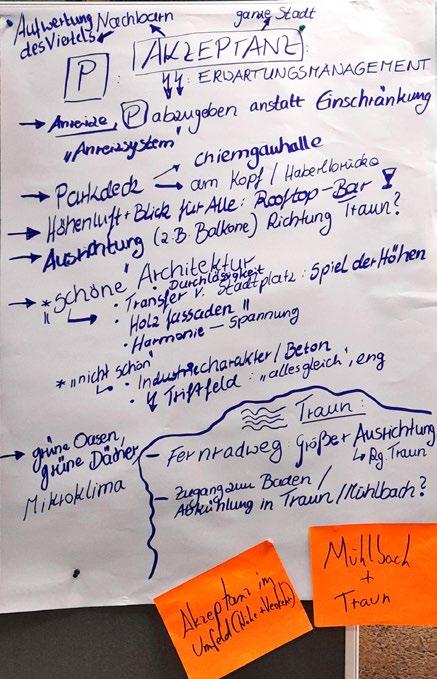 Aufwertung Nachbarn ganze Stadt
des Viertels
AKZEPTANZ
P : ERWARTUNGSMANAGEMENT
→ Anreize, P abzugeben anstatt Einschränkung
"Anreizsystem"
→ Parkdeck → Chiemgauhalle
→ am Kopf / Haberlbrücke
→ Höhenluft + Blick für Alle: Rooftop-Bar
→ Ausrichtung (z.B. Balkone) Richtung Traun?
→ * "schöne" Architektur
• Durchlässigkeit
• Transfer v. Stadtplatz: Spiel der Höhen
• Holzfassaden"
• Harmonie – Spannung
* "nicht schön"
• Industriecharakter/Beton
Triftfeld: "alles gleich", eng
Traun:
→ grüne Oasen,
grüne Dächer
Mikroklima
– Fernradweg: Größe + Ausrichtung
↳ Rg. Traun
– Zugang zum Baden/
Abkühlung in Traun/Mühlbach?
Akzeptanz im
Umfeld (Höhe + Verkehr)
Mühlbach
+
Traun